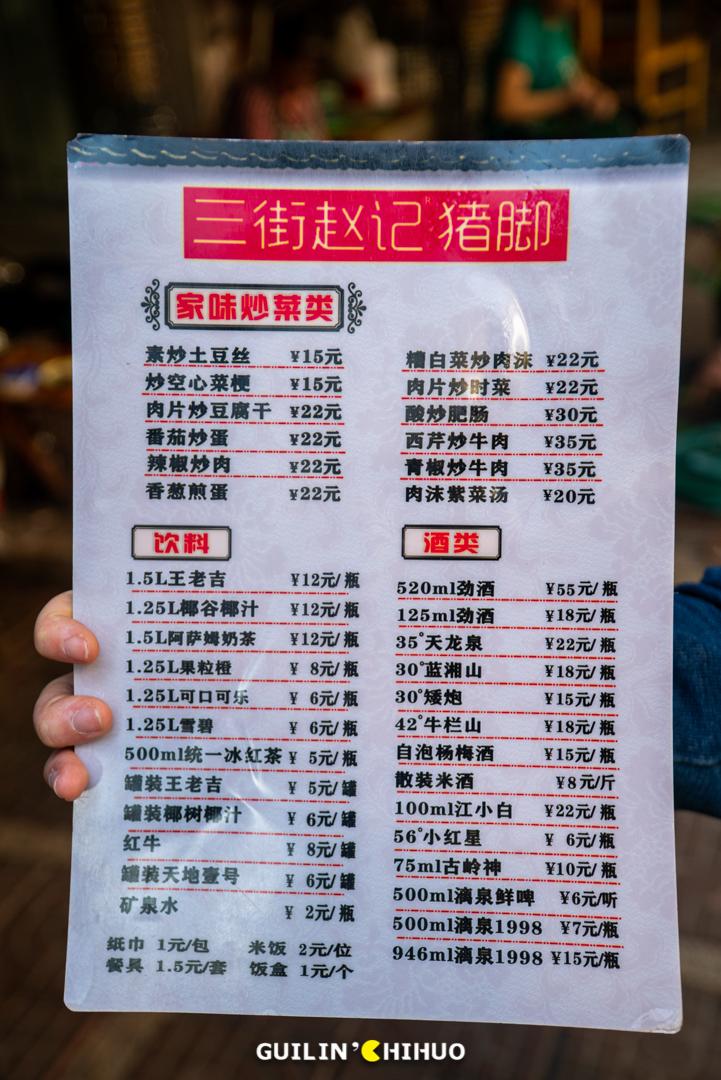 三街赵记猪脚
家味炒菜类
素炒土豆丝 ¥15元
炒空心菜梗 ¥15元
肉片炒豆腐干 ¥22元
番茄炒蛋 ¥22元
辣椒炒肉 ¥22元
香葱煎蛋 ¥22元
糟白菜炒肉沫 ¥22元
肉片炒时菜 ¥22元
酸炒肥肠 ¥30元
西芹炒牛肉 ¥35元
青椒炒牛肉 ¥35元
肉沫紫菜汤 ¥20元
饮料
1.5L王老吉 ¥12元/瓶
1.25L椰谷椰汁 ¥12元/瓶
1.5L阿萨姆奶茶 ¥12元/瓶
1.25L果粒橙 ¥ 8元/瓶
1.25L可口可乐 ¥ 6元/瓶
1.25L雪碧 ¥ 6元/瓶
500ml统一冰红茶 ¥ 5元/瓶
罐装王老吉 ¥ 5元/罐
罐装椰树椰汁 ¥ 6元/罐
红牛 ¥ 8元/罐
罐装天地壹号 ¥ 6元/罐
矿泉水 ¥ 2元/瓶
纸巾 1元/包 米饭 2元/位
餐具 1.5元/套 饭盒 1元/个
酒类
520ml劲酒 ¥55元/瓶
125ml劲酒 ¥18元/瓶
35°天龙泉 ¥22元/瓶
30°蓝湘山 ¥18元/瓶
30°矮炮 ¥15元/瓶
42°牛栏山 ¥18元/瓶
自泡杨梅酒 ¥15元/瓶
散装米酒 ¥8元/斤
100ml江小白 ¥22元/瓶
56°小红星 ¥ 6元/瓶
75ml古岭神 ¥10元/瓶
500ml漓泉鲜啤 ¥6元/听
500ml漓泉1998 ¥7元/瓶
946ml漓泉1998 ¥15元/瓶
GUILIN'CHIHUO